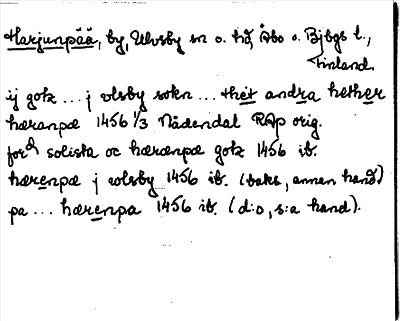 Harjunpää, by, Ulvsby sn o. hd, Åbo o. Bjbgs l.,
Finland.
ij gotz ... j vlsby sokn ... thet andra hether
hæranpæ 1456 1/3 Nådendal RAp orig.
ford solista oc hæranpæ gotz 1456 ib.
hærenpæ j wlsby 1456 ib. (baks, annen hand)
pa ... hærenpa 1456 ib. (d:o, s:a hand).